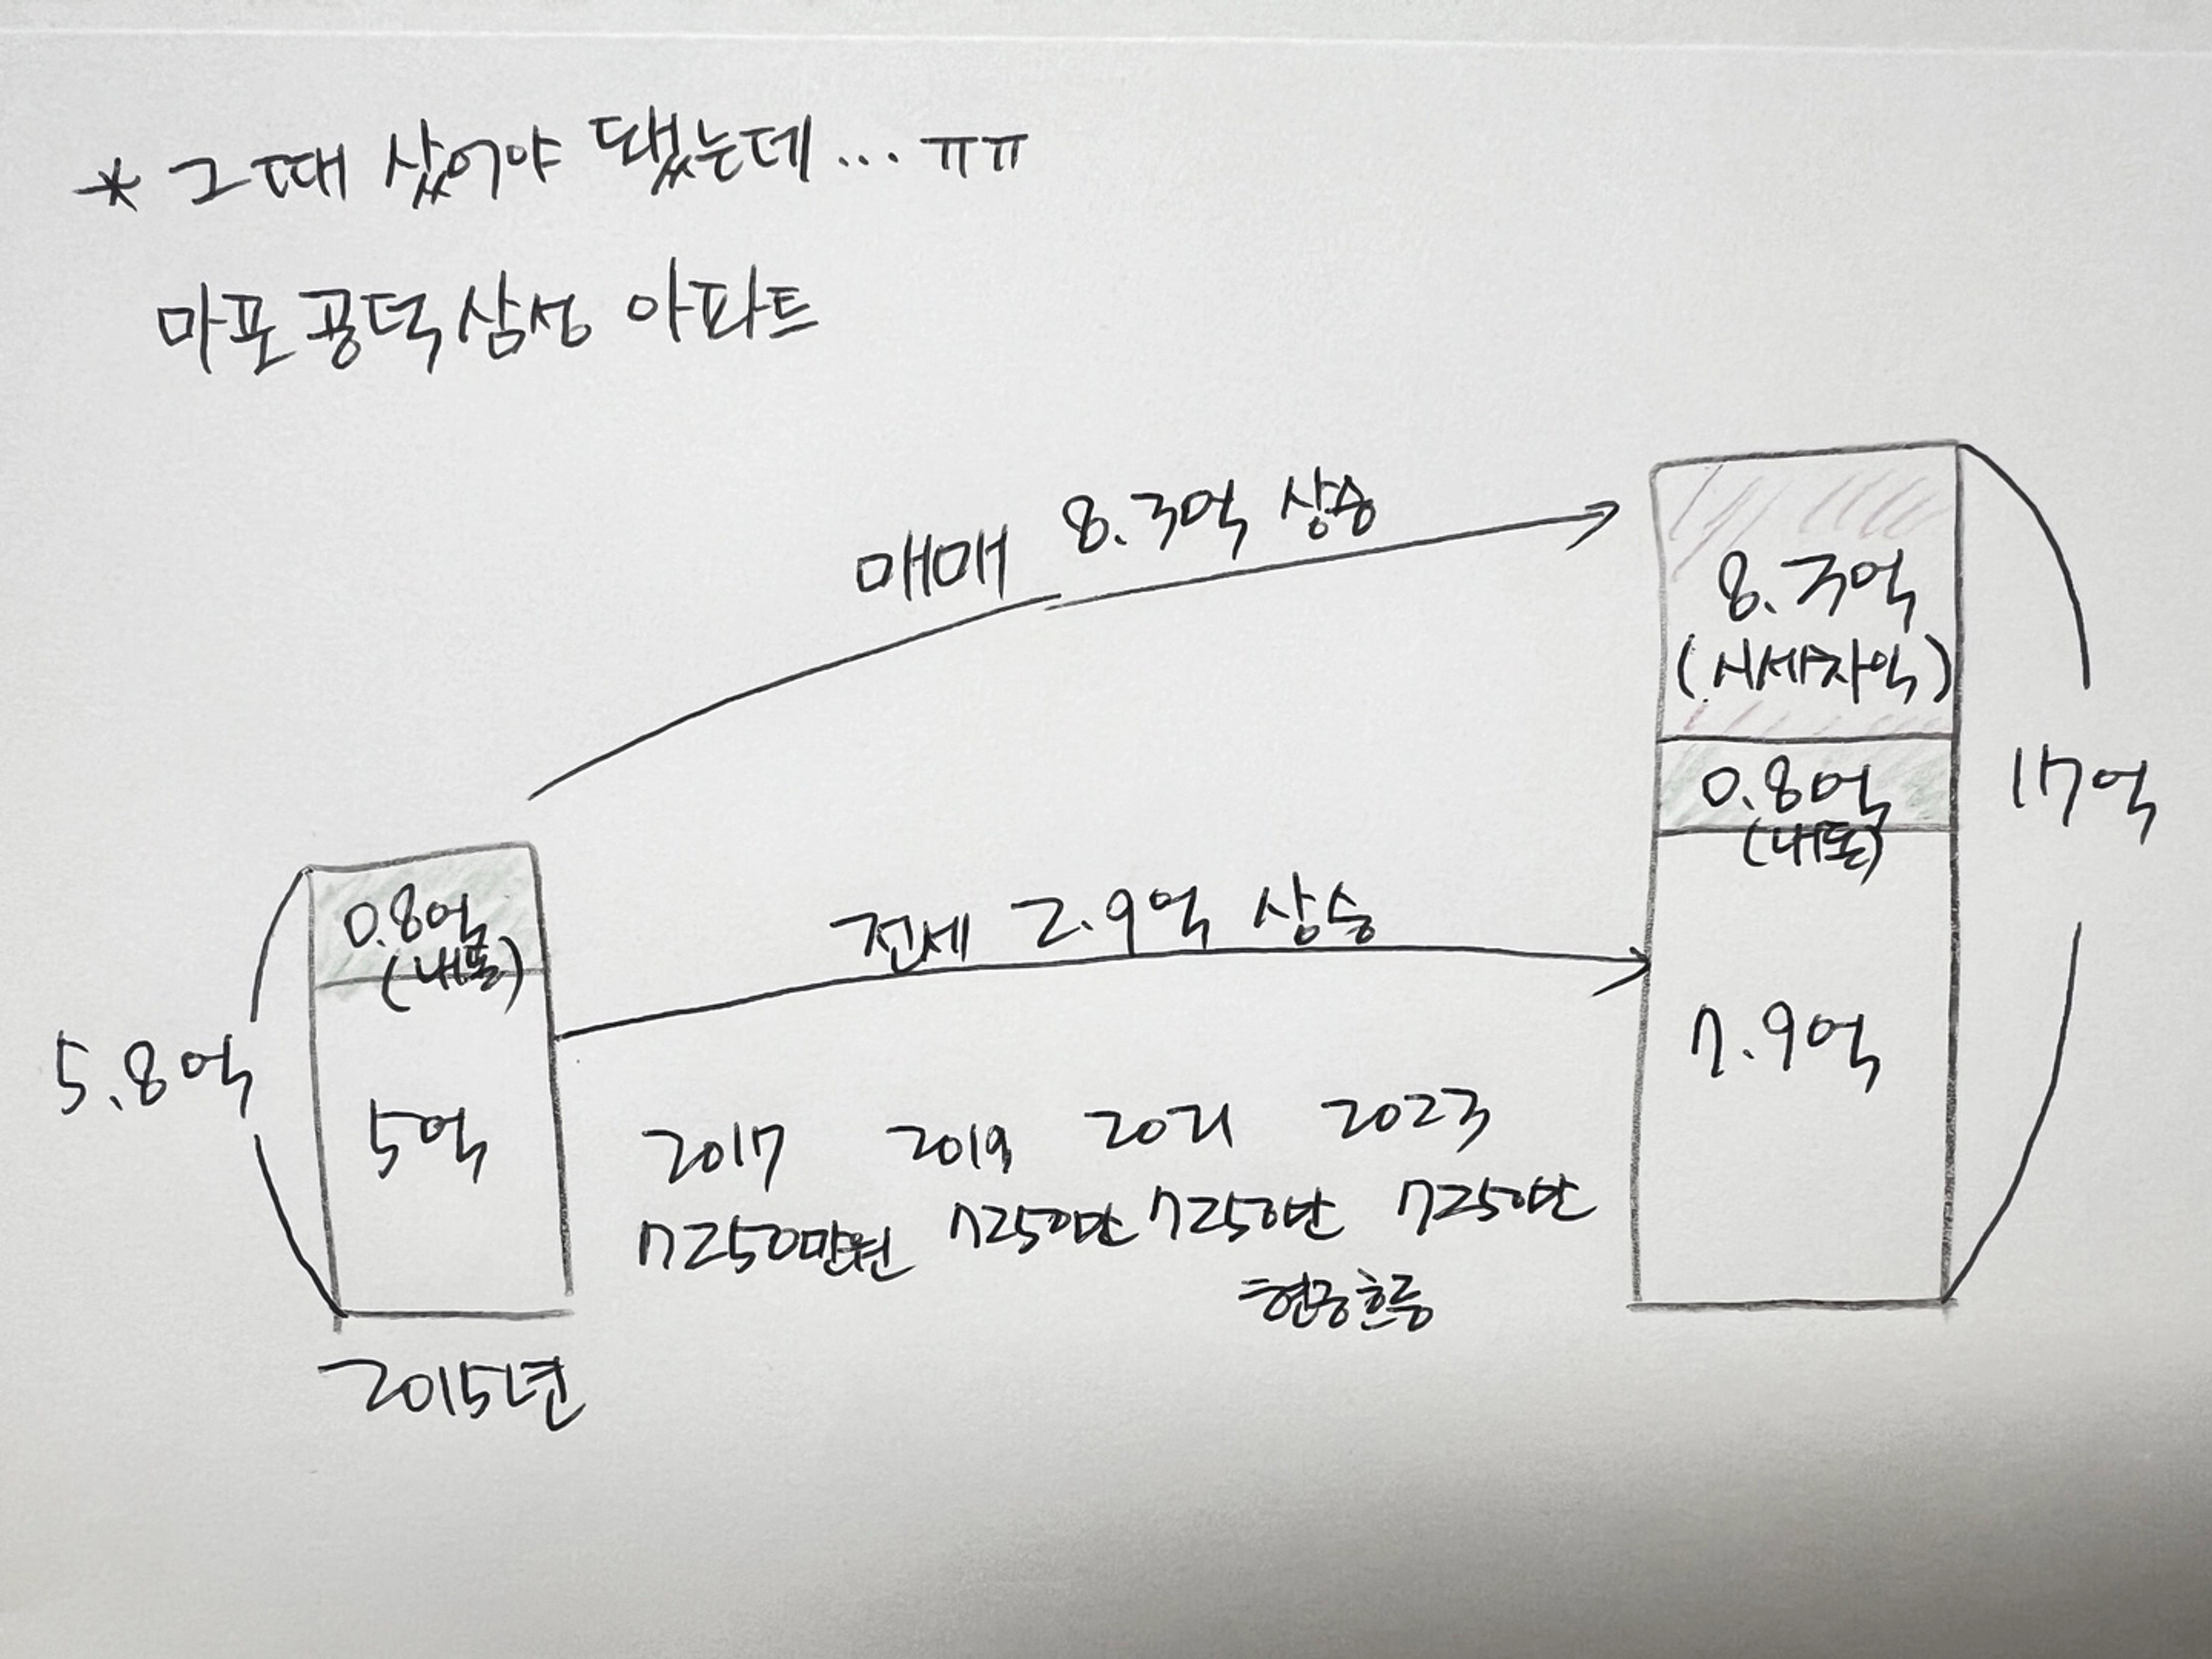 * 그때 샀어야 됐는데... ㅠㅠ
마포 공덕삼성 아파트
매매 8.3억 상승
8.3억
(시세차익)
0.8억
(내돈)
17억
0.8억
(내돈)
전세 2.9억 상승
5.8억
5억
7.9억
2017 2019 2021 2023
7250만원 7250만 7250만 7250만
현금흐름
2015년